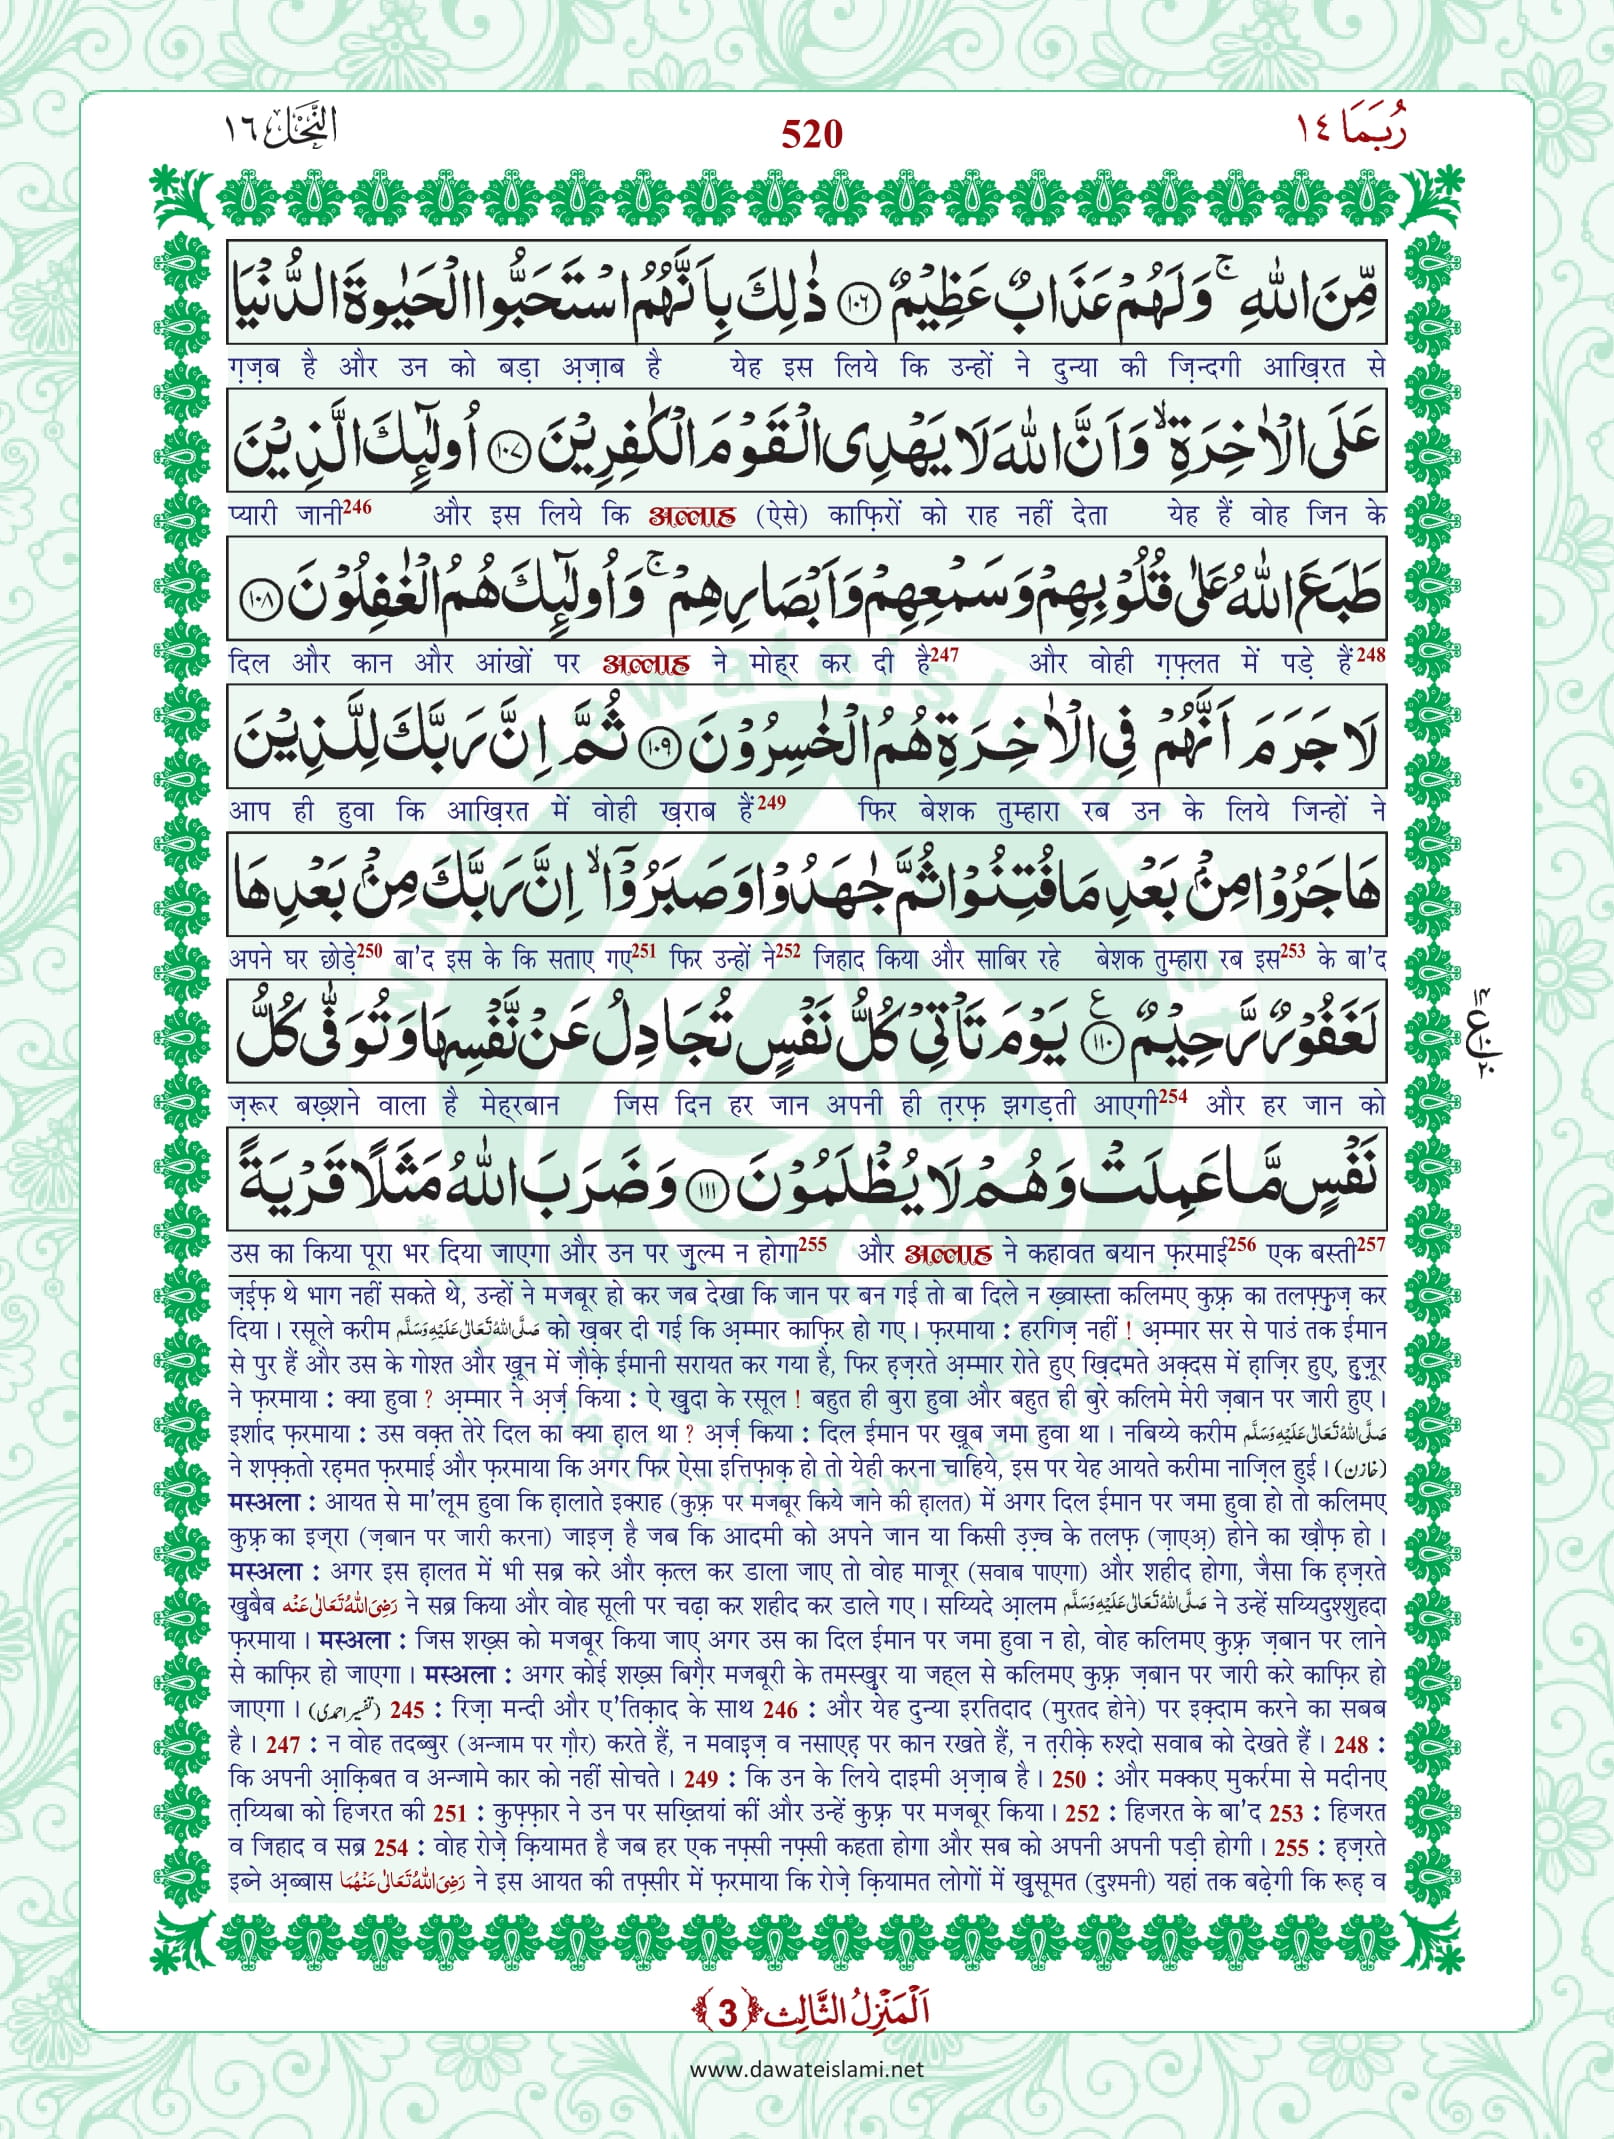 النَّحْل ١٦
520
رُبَمَا ١٤
مِّنَ اللّٰهِ ۚ وَلَهُمْ عَذَابٌ عَظِیْمٌ ﴿۱۰۶﴾ ذٰلِكَ بِاَنَّهُمُ اسْتَحَبُّوا الْحَیٰوةَ الدُّنْیَا
ग़ज़ब है और उन को बड़ा अ़ज़ाब है येह इस लिये कि उन्हों ने दुन्या की ज़िन्दगी आख़िरत से
عَلَی الْاٰخِرَةِ ۙ وَاَنَّ اللّٰهَ لَا یَهْدِی الْقَوْمَ الْكٰفِرِیْنَ ﴿۱۰۷﴾ اُولٰٓىِٕكَ الَّذِیْنَ
प्यारी जानी246 और इस लिये कि अल्लाह (ऐसे) काफ़िरों को राह नहीं देता येह हैं वोह जिन के
طَبَعَ اللّٰهُ عَلٰی قُلُوْبِهِمْ وَسَمْعِهِمْ وَاَبْصَارِهِمْ ۚ وَاُولٰٓىِٕكَ هُمُ الْغٰفِلُوْنَ ﴿۱۰۸﴾
दिल और कान और आंखों पर अल्लाह ने मोह्र कर दी है247 और वोही ग़फ़्लत में पड़े हैं248
لَا جَرَمَ اَنَّهُمْ فِی الْاٰخِرَةِ هُمُ الْخٰسِرُوْنَ ﴿۱۰۹﴾ ثُمَّ اِنَّ رَبَّكَ لِلَّذِیْنَ
आप ही हुवा कि आख़िरत में वोही ख़राब हैं249 फिर बेशक तुम्हारा रब उन के लिये जिन्हों ने
هَاجَرُوْا مِنْۢ بَعْدِ مَا فُتِنُوْا ثُمَّ جٰهَدُوْا وَصَبَرُوْۤا ۙ اِنَّ رَبَّكَ مِنْۢ بَعْدِهَا
अपने घर छोड़े250 बा'द इस के कि सताए गए251 फिर उन्हों ने252 जिहाद किया और साबिर रहे बेशक तुम्हारा रब इस253 के बा'द
لَغَفُوْرٌ رَّحِیْمٌ ﴿۱۱۰﴾ یَوْمَ تَاْتِیْ كُلُّ نَفْسٍ تُجَادِلُ عَنْ نَّفْسِهَا وَتُوَفّٰی كُلُّ
ज़रूर बख़्शने वाला है मेह्रबान जिस दिन हर जान अपनी ही त़रफ़ झगड़ती आएगी254 और हर जान को
نَفْسٍ مَّا عَمِلَتْ وَهُمْ لَا یُظْلَمُوْنَ ﴿۱۱۱﴾ وَضَرَبَ اللّٰهُ مَثَلًا قَرْیَةً
उस का किया पूरा भर दिया जाएगा और उन पर ज़ुल्म न होगा255 और अल्लाह ने कहावत बयान फ़रमाई256 एक बस्ती257
ज़ईफ़ थे भाग नहीं सकते थे, उन्हों ने मजबूर हो कर जब देखा कि जान पर बन गई तो बा दिले न ख़्वास्ता कलिमए कुफ़्र का तलफ़्फ़ुज़ कर
दिया। रसूले करीम صَلَّى اللّٰهُ تَعَالٰى عَلَيْهِ وَسَلَّم को ख़बर दी गई कि अ़म्मार काफ़िर हो गए। फ़रमाया : हरगिज़ नहीं! अ़म्मार सर से पाउं तक ईमान
से पुर हैं और उस के गोश्त और ख़ून में ज़ौक़े ईमानी सरायत कर गया है, फिर ह़ज़रते अ़म्मार रोते हुए ख़िदमते अक़्दस में ह़ाज़िर हुए, हुज़ूर
ने फ़रमाया : क्या हुवा? अ़म्मार ने अ़र्ज़ किया : ऐ ख़ुदा के रसूल! बहुत ही बुरा हुवा और बहुत ही बुरे कलिमे मेरी ज़बान पर जारी हुए।
इर्शाद फ़रमाया : उस वक़्त तेरे दिल का क्या ह़ाल था? अ़र्ज़ किया : दिल ईमान पर ख़ूब जमा हुवा था। नबिय्ये करीम صَلَّى اللّٰهُ تَعَالٰى عَلَيْهِ وَسَلَّم
ने शफ़्क़तो रह़मत फ़रमाई और फ़रमाया कि अगर फिर ऐसा इत्तिफ़ाक़ हो तो येही करना चाहिये, इस पर येह आयते करीमा नाज़िल हुई। (خازن)
मस्अला : आयत से मा'लूम हुवा कि ह़ालाते इक्राह (कुफ़्र पर मजबूर किये जाने की ह़ालत) में अगर दिल ईमान पर जमा हुवा हो तो कलिमए
कुफ़्र का इज्रा (ज़बान पर जारी करना) जाइज़ है जब कि आदमी को अपने जान या किसी उ़ज़्व के तलफ़ (ज़ाएअ़) होने का ख़ौफ़ हो।
मस्अला : अगर इस ह़ालत में भी सब्र करे और क़त्ल कर डाला जाए तो वोह माजूर (सवाब पाएगा) और शहीद होगा, जैसा कि ह़ज़रते
ख़ुबैब رَضِىَ اللّٰهُ تَعَالٰى عَنْه ने सब्र किया और वोह सूली पर चढ़ा कर शहीद कर डाले गए। सय्यिदे आ़लम صَلَّى اللّٰهُ تَعَالٰى عَلَيْهِ وَسَلَّم ने उन्हें सय्यिदुश्शुहदा
फ़रमाया। मस्अला : जिस शख़्स को मजबूर किया जाए अगर उस का दिल ईमान पर जमा हुवा न हो, वोह कलिमए कुफ़्र ज़बान पर लाने
से काफ़िर हो जाएगा। मस्अला : अगर कोई शख़्स बिग़ैर मजबूरी के तमस्ख़ुर या जह्ल से कलिमए कुफ़्र ज़बान पर जारी करे काफ़िर हो
जाएगा। (تفسیر احمدی) 245 : रिज़ा मन्दी और ए'तिक़ाद के साथ 246 : और येह दुन्या इरतिदाद (मुरतद होने) पर इक़्दाम करने का सबब
है। 247 : न वोह तदब्बुर (अन्जाम पर ग़ौर) करते हैं, न मवाइज़ व नसाएह़ पर कान रखते हैं, न त़रीक़े रुश्दो सवाब को देखते हैं। 248 :
कि अपनी आ़क़िबत व अन्जामे कार को नहीं सोचते। 249 : कि उन के लिये दाइमी अ़ज़ाब है। 250 : और मक्कए मुकर्रमा से मदीनए
त़य्यिबा को हिजरत की 251 : कुफ़्फ़ार ने उन पर सख़्तियां कीं और उन्हें कुफ़्र पर मजबूर किया। 252 : हिजरत के बा'द 253 : हिजरत
व जिहाद व सब्र 254 : वोह रोज़े क़ियामत है जब हर एक नफ़्सी नफ़्सी कहता होगा और सब को अपनी अपनी पड़ी होगी। 255 : ह़ज़रते
इब्ने अ़ब्बास رَضِىَ اللّٰهُ تَعَالٰى عَنْهُمَا ने इस आयत की तफ़्सीर में फ़रमाया कि रोज़े क़ियामत लोगों में ख़ुसूमत (दुश्मनी) यहां तक बढ़ेगी कि रूह़ व
اَلْمَنْزِلُ الثَّالِث ﴿3﴾
www.dawateislami.net